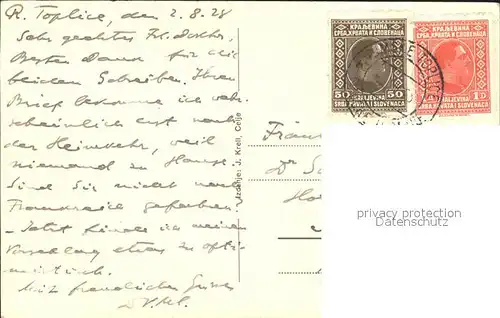 R. Toplice, den 2.8.28
Sehr geehrtes Frl. Doktor,
Besten Dank für die
beiden Schreiben. Ihren
Brief bekomme ich wahr-
scheinlich erst nach
der Heimkehr, weil
niemand zu Hause.
Sind Sie nicht nach
Frankreich gefahren?
- Jetzt finde ich meinen
Vorschlag etwas zu opti-
mistisch.
Mit freundlichen Grüssen
Izdanje: J. Krell, Celje
КРАЉЕВИНА
СРБА, ХРВАТА И СЛОВЕНАЦА
50 50
KRALJEVINA
SRBA HRVATA I SLOVENACA
КРАЉЕВИНА
СРБА, ХРВАТА И СЛОВЕНАЦА
1 D
KRALJEVINA
SRBA HRVATA I SLOVENACA
Dr
privacy protection
Datenschutz